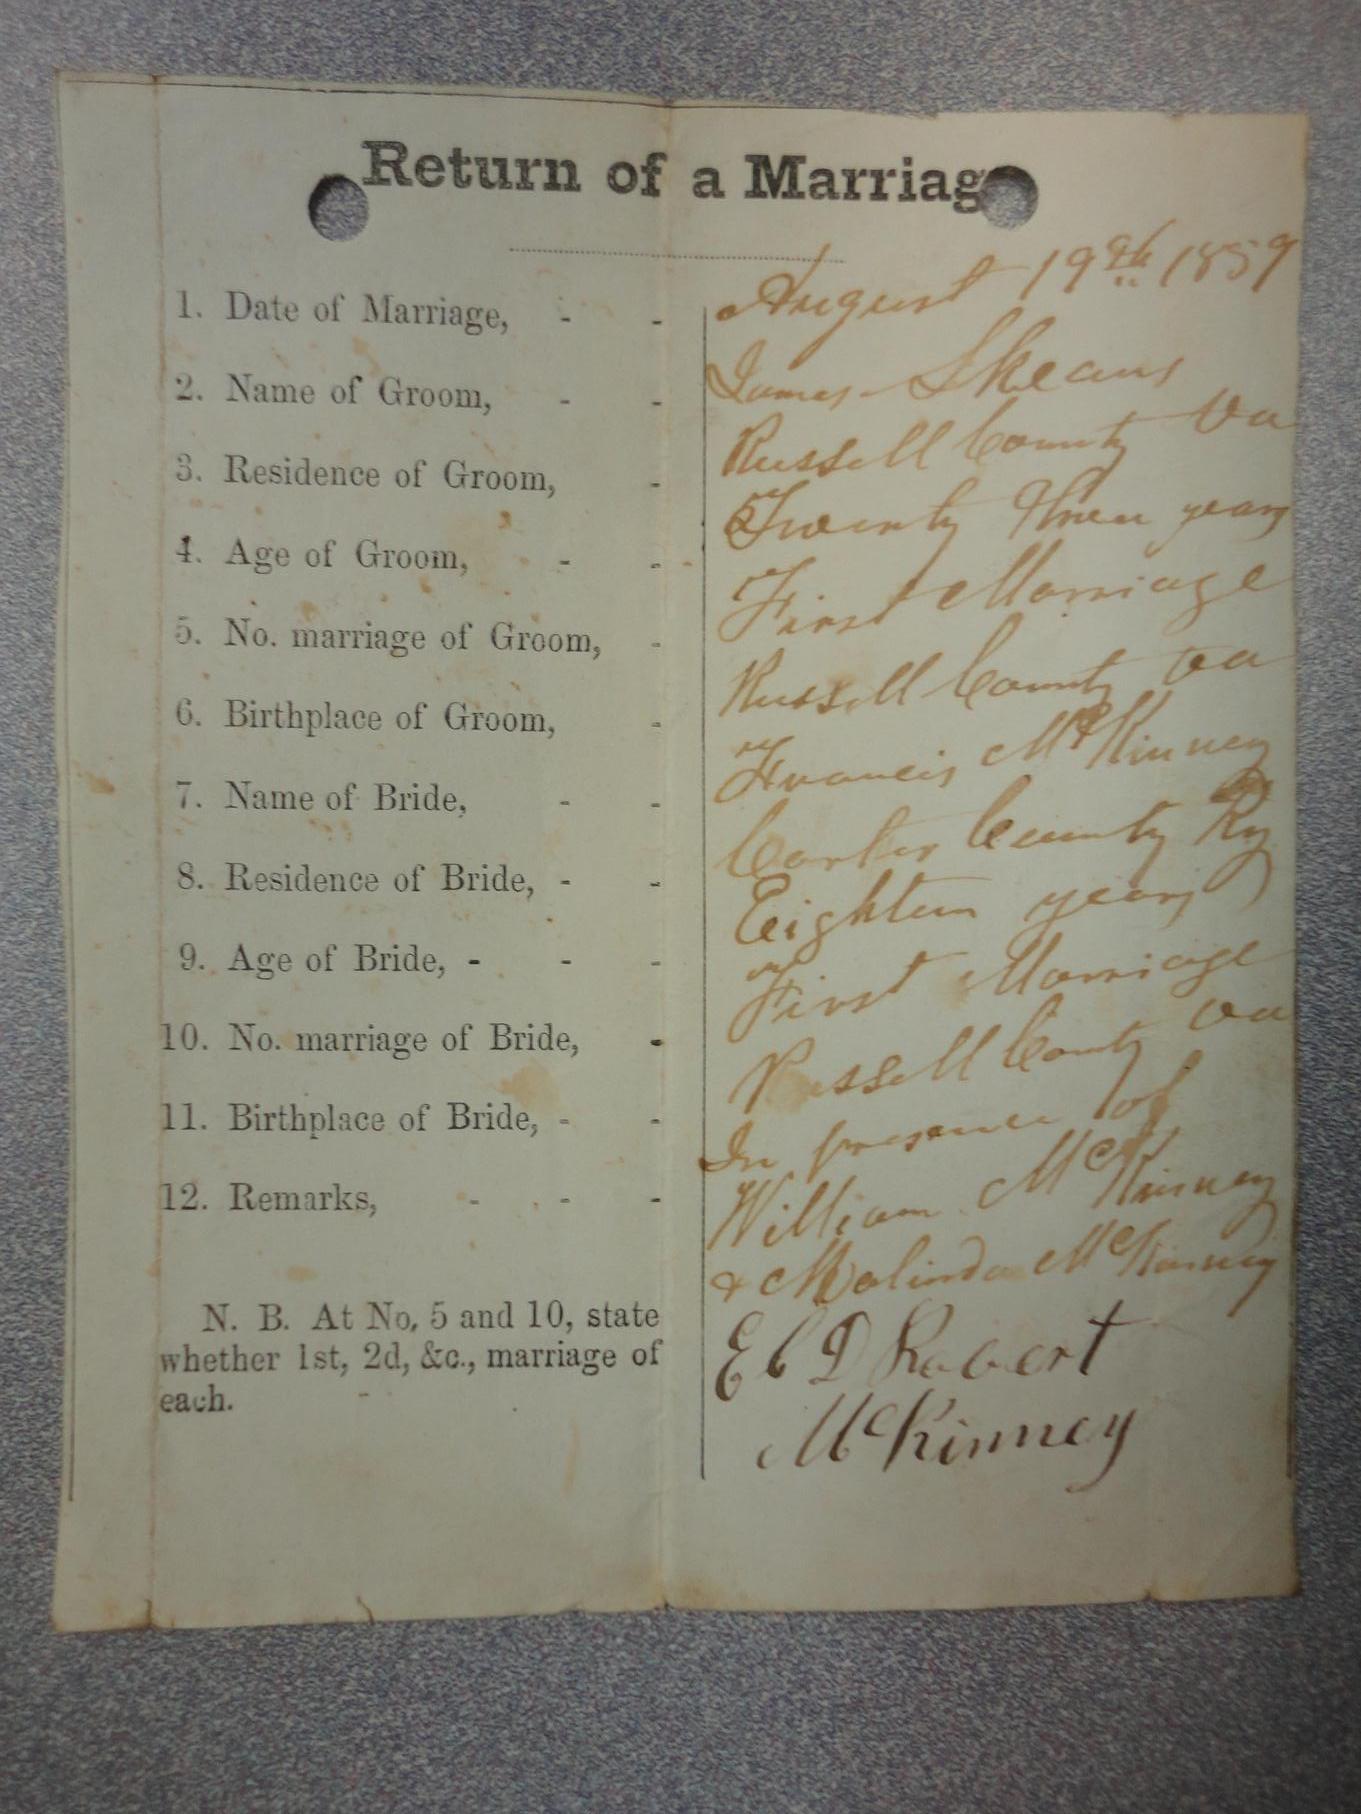 Return of a Marriag
1. Date of Marriage, - - August 19th 1859
2. Name of Groom, - - James Skeans
3. Residence of Groom, - Russell County Va
4. Age of Groom, - - Twenty Three years
5. No. marriage of Groom, - First Marriage
6. Birthplace of Groom, - Russell County Va
7. Name of Bride, - - Francis McKinney
8. Residence of Bride, - - Carter County Ky
9. Age of Bride, - - - Eighteen years
10. No. marriage of Bride, - First Marriage
11. Birthplace of Bride, - - Russell County Va
12. Remarks, - - - In presence of
William McKinney
& Malinda McKinney
N. B. At No, 5 and 10, state
whether 1st, 2d, &c., marriage of
each.
E C D Robert
McKinney